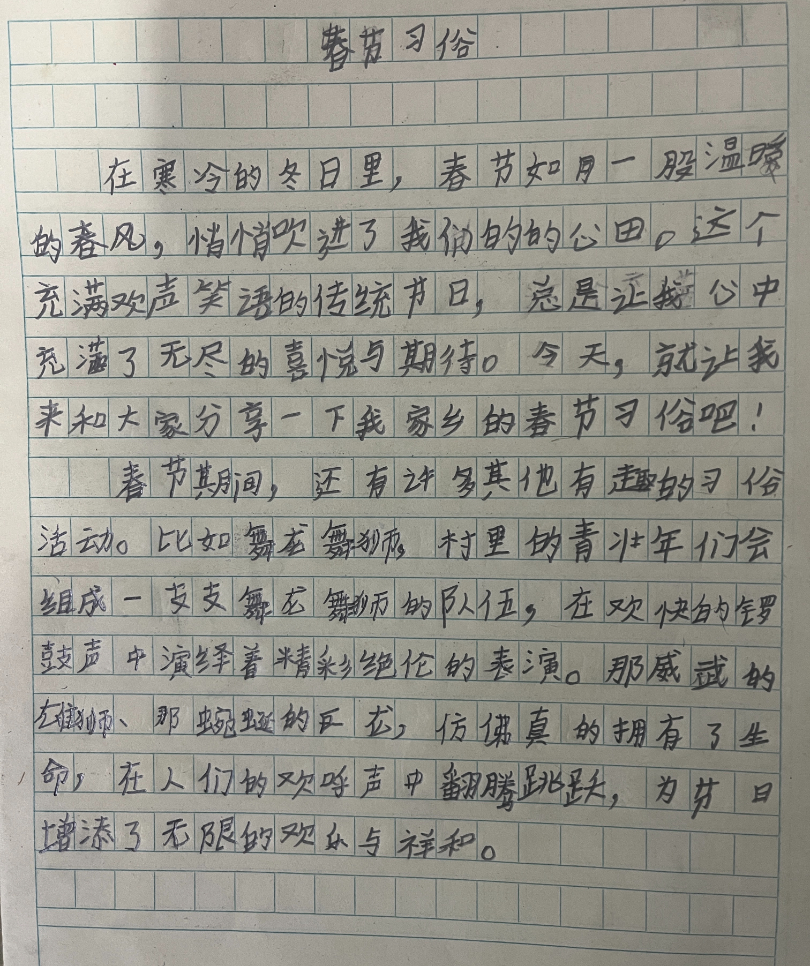 春节习俗
在寒冷的冬日里，春节如月一股温暖
的春风，悄悄吹进了我们的的心田。这个
充满欢声笑语的传统节日，总是让我心中
充满了无尽的喜悦与期待。今天，就让我
来和大家分享一下我家乡的春节习俗吧！
春节期间，还有许多其他有趣的习俗
活动。比如舞龙舞狮，村里的青壮年们会
组成一支支舞龙舞狮的队伍，在欢快的锣
鼓声中演绎着精彩绝伦的表演。那威武的
雄狮、那蜿蜒的巨龙，仿佛真的拥有了生
命，在人们的欢呼声中翻腾跳跃，为节日
增添了无限的欢乐与祥和。